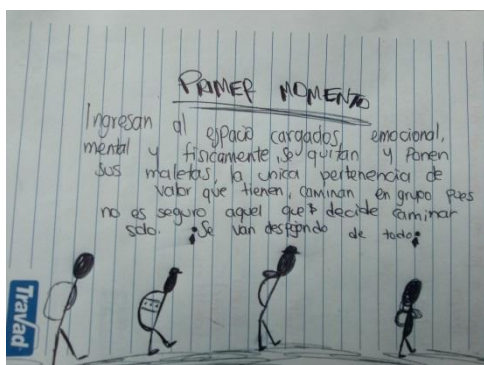 PRIMER MOMENTO
Ingresan al espacio cargados, emocional,
mental y fisicamente, se quitan y ponen
sus maletas, la unica pertenencia de
valor que tienen, caminan en grupo pues
no es seguro aquel que decide caminar
solo. Se van despojando de todo.
Travad